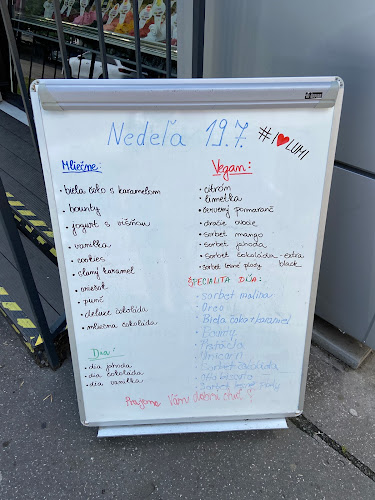 Nedeľa 19.7.
#I❤LUMI
Mliečne:
• biela čoko s karamelom
• bounty
• jogurt s višňou
• vanilka
• cookies
• slaný karamel
• oriešok
• punč
• deluxe čokoláda
• mliečna čokoláda
Dia:
• dia jahoda
• dia čokoláda
• dia vanilka
Vegan:
• citrón
• limetka
• červený pomaranč
• dračie ovocie
• sorbet mango
• sorbet jahoda
• sorbet čokoláda - extra black
• sorbet lesné plody
ŠPECIALITA DŇA:
- sorbet malina
- Oreo
- Biela čoko + karamel
- Pistácia
- Unicorn
- Sorbet čokoláda
- Sorbet lesné plody
Prajeme Vám dobrú chuť!